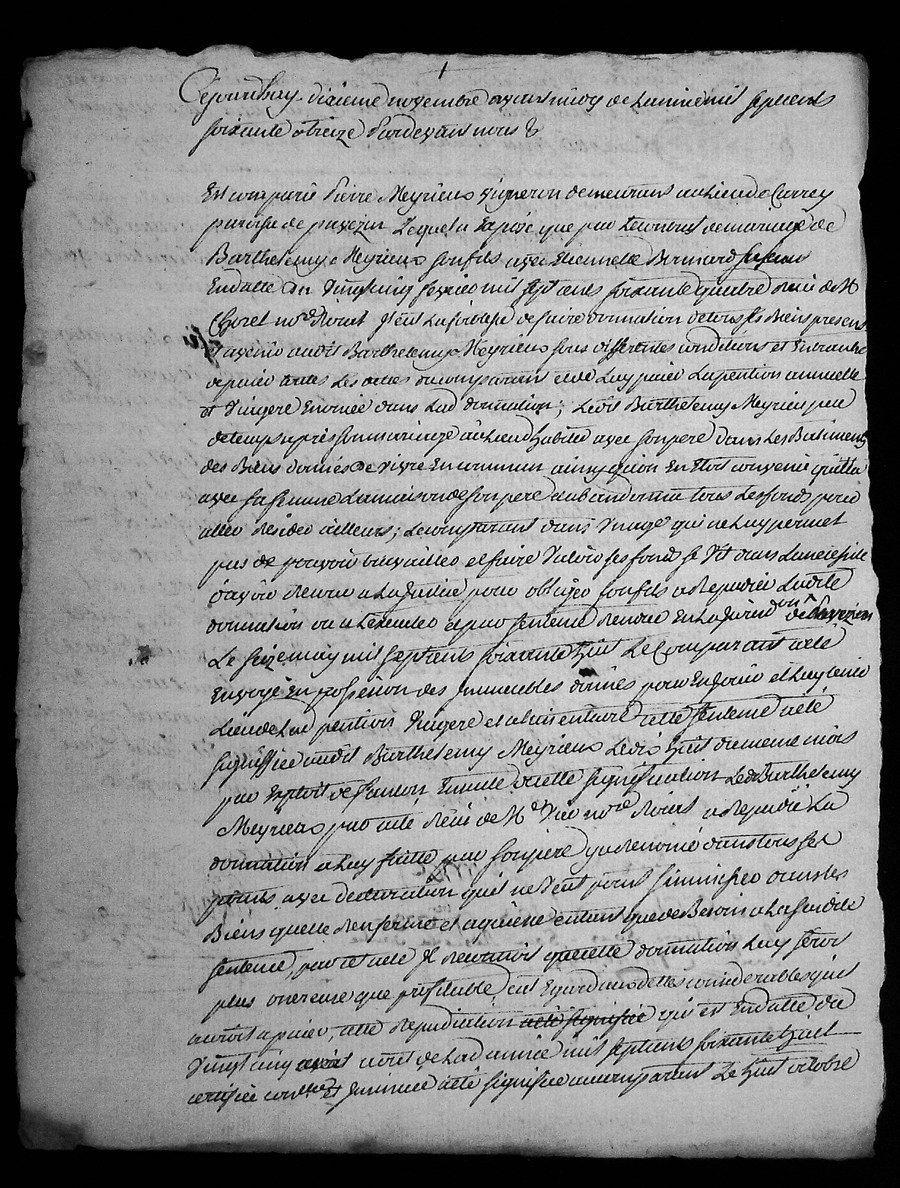 Cejourdhuy dixieme novembre avant midy de Lanné mil sept cent
soixante et treize Pardevant nous &
Est comparu Pierre Meyrieux vigneron demeurant au Lieu de Carrey
paroisse de pavezin Lequel a Exposé que par Le contrat de mariage de
Barthelemy Meyrieux son fils avec Etiennette Bernard sa femme
En datte du vingt cinq fevrier mil sept cens soixante quatre Reçu de Me
Choret nore Royal Il eut La foiblesse de faire donnation de tous ses Biens presens
et avenir audit Barthelemy Meyrieux sous differentes conditions et Entrautre
de paier toutes Les dettes du comparant et de Luy paier La pention annuelle
et viagere Enoncée dans Lad donnation; Ledit Barthelemy Meyrieux peu
de temps apres son mariage au Lieu d'habiter avec son pere dans Les Batiments
des Biens donnés De vivre En commun ainsy qu'on En etoit convenu quitta
avec sa femme La maison de son pere et abandonna tous Les fonds pour
aller resider ailleurs; Le comparant dans un age qui ne Luy permet
pas de pouvoir travailler et faire valoir ses fonds se vit dans La necessité
d'avoir recours a La Justice pour obliger son fils a repudier Ladite
donnation ou a L'executer et par sentence rendue En La Juridon de Pavezin
Le seize may mil sept cens soixante huit Le Comparant a eté
Envoyé En possession des Immeubles donnés pour En Jouir et Luy tenir
Lieu de Lad pention viagere et alimentaire cette sentence a eté
signiffiée audit Barthelemy Meyrieux Le dix huit du meme mois
par Exploit de Ensuitte de cette signiffication Led Barthelemy
Meyrieux par acte Reçu de Me nore Royal a repudié La
donnation a Luy faitte par son pere y a renoncé dans tous ses
points avec declaration qu'il ne veut point s'immiscer dans les
Biens quelle renferme et aquiesse entant que de Besoin a La susdite
sentence, par cet acte Il reconnoit que cette donnation Luy seroit
plus onereuse que profitable eut Egard aux dettes considerables qu'il
auroit a paier, cette repudiation acte signifié qui est En datte du
vingt cinq aout de Lad année mil sept cens soixante huit
certifiée conlle Et Insinuée a eté signifiée au comparant Le huit octobre